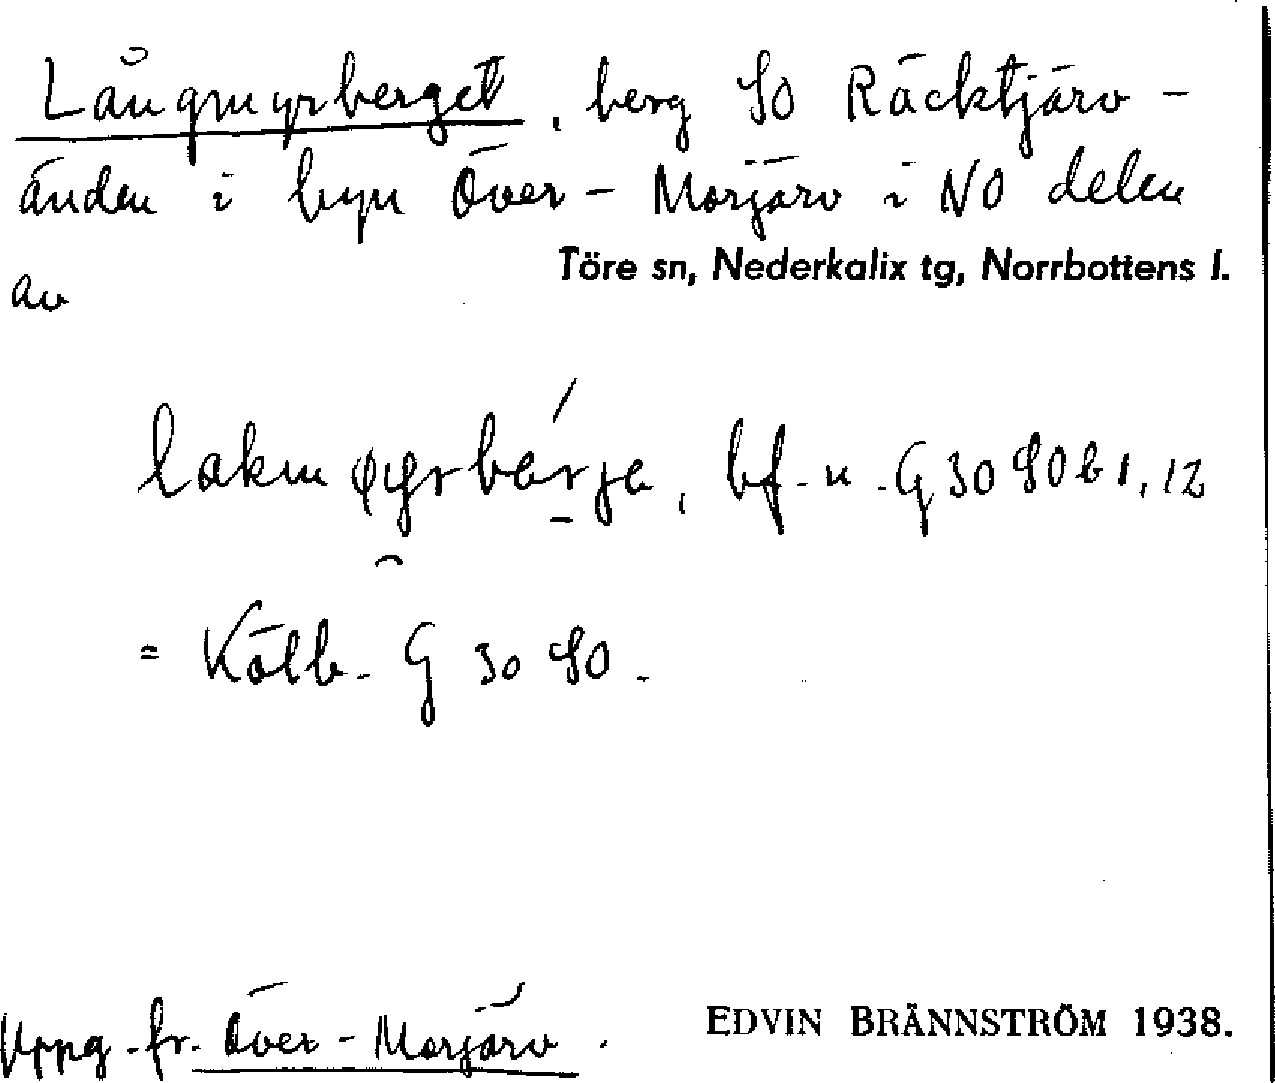 Långmyrberget, berg SO Räcktjärv-
änden i byn Över-Morjärv i NO delen
av Töre sn, Nederkalix tg, Norrbottens l.
bf. u. G 30 SO b 1, 12
= Kölb. G 30 SO.
Uppg. fr. Över-Morjärv.
EDVIN BRÄNNSTRÖM 1938.